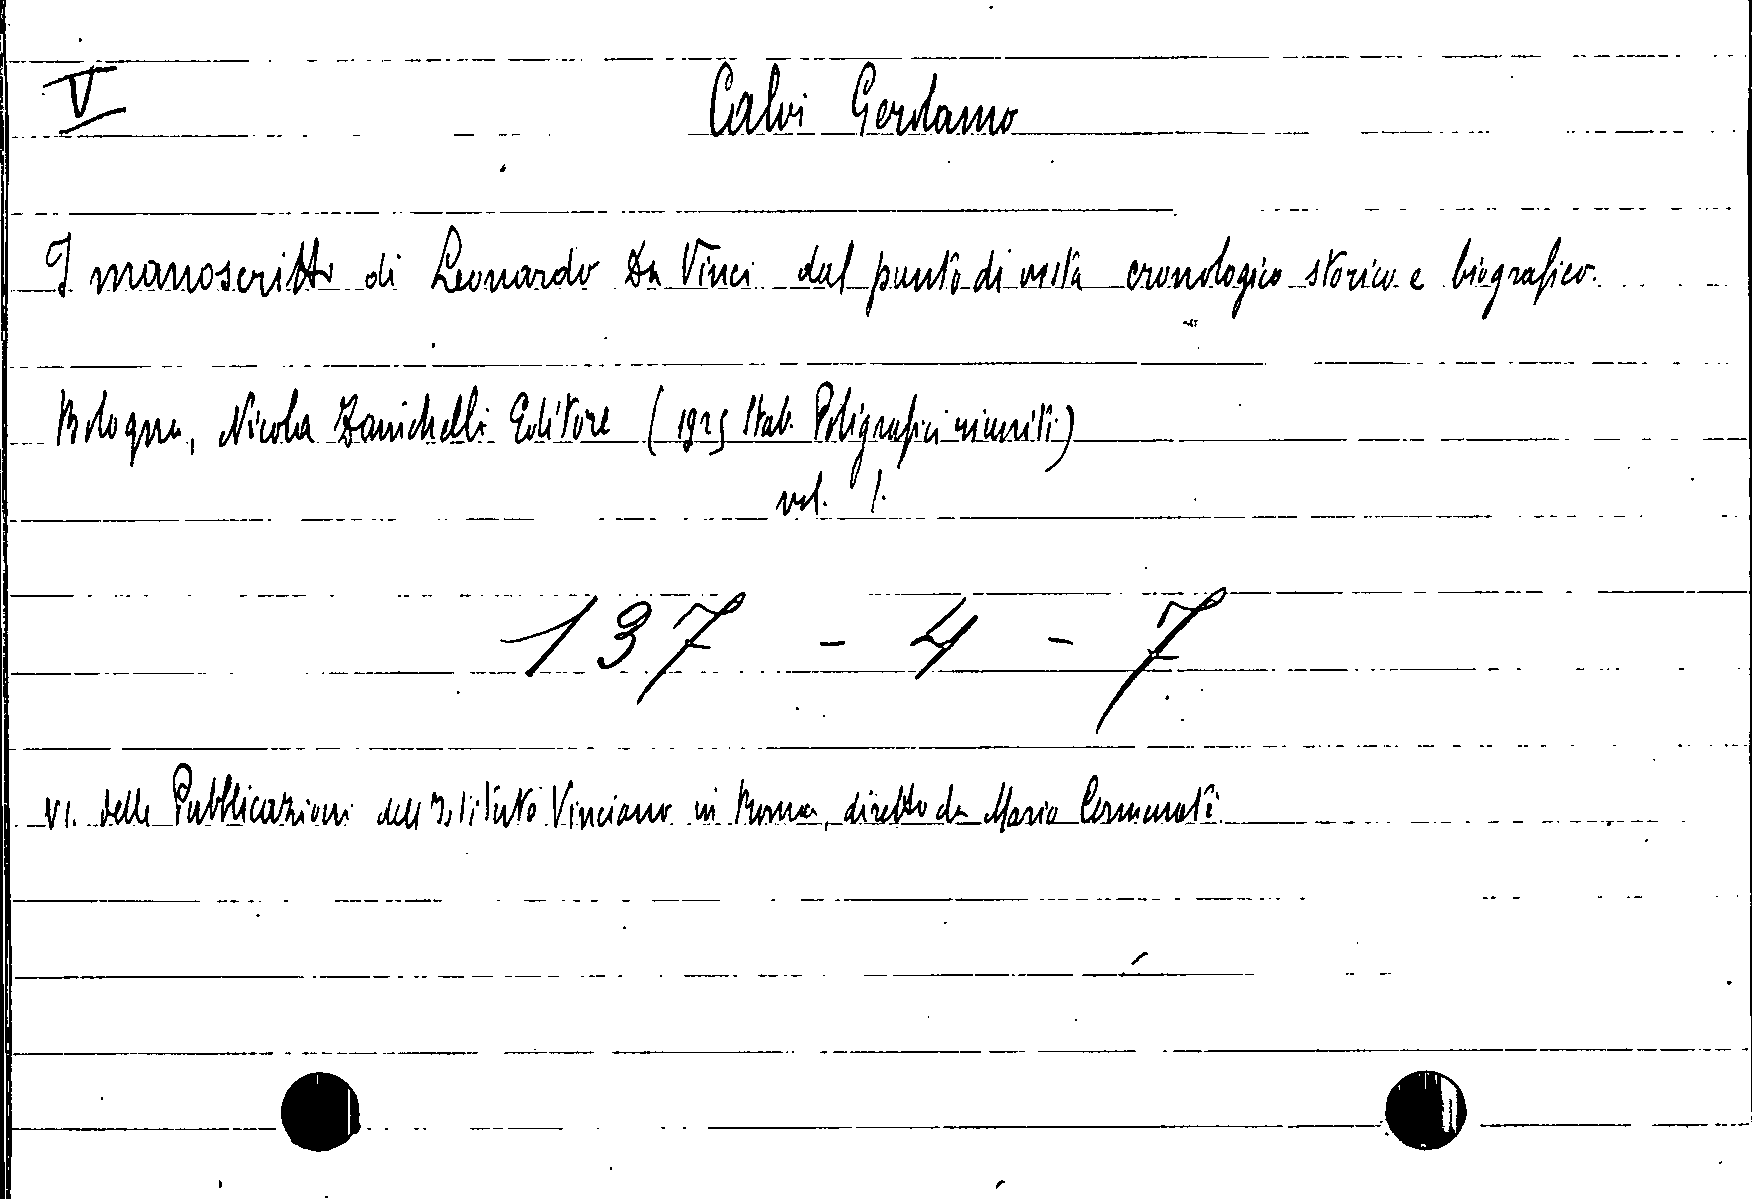 V
Calvi Gerolamo
I manoscritti di Leonardo Da Vinci dal punto di vista cronologico storico e biografico.
Bologna, Nicola Zanichelli Editore (1925 Stab. Poligrafici riuniti)
vol. 1.
137 - 4 - 7
VI. delle Pubblicazioni dell'Istituto Vinciano in Roma, diretto da Mario Cermenati